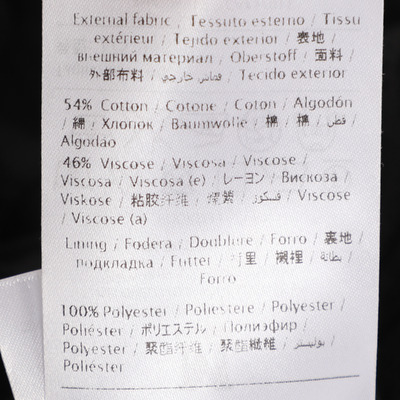 External fabric / Tessuto esterno / Tissu
extérieur / Tejido exterior / 表地 /
внешний материал / Oberstoff / 面料 /
外部布料 / قماش خارجي / Tecido exterior
54% Cotton / Cotone / Coton / Algodón
/ 綿 / Хлопок / Baumwolle / 棉 / 棉 / قطن /
Algodão
46% Viscose / Viscosa / Viscose /
Viscosa / Viscosa (e) / レーヨン / Вискоза /
Viskose / 粘胶纤维 / / فسكوز / Viscose
/ Viscose (a)
Lining / Fodera / Doublure / Forro / 裏地 /
подкладка / Futter / 衬里 / 襯裡 / بطانة /
Forro
100% Polyester / Poliestere / Polyester /
Poliéster / ポリエステル / Полиэфир /
Polyester / 聚酯纤维 / 聚酯纖維 / بوليستر /
Poliéster